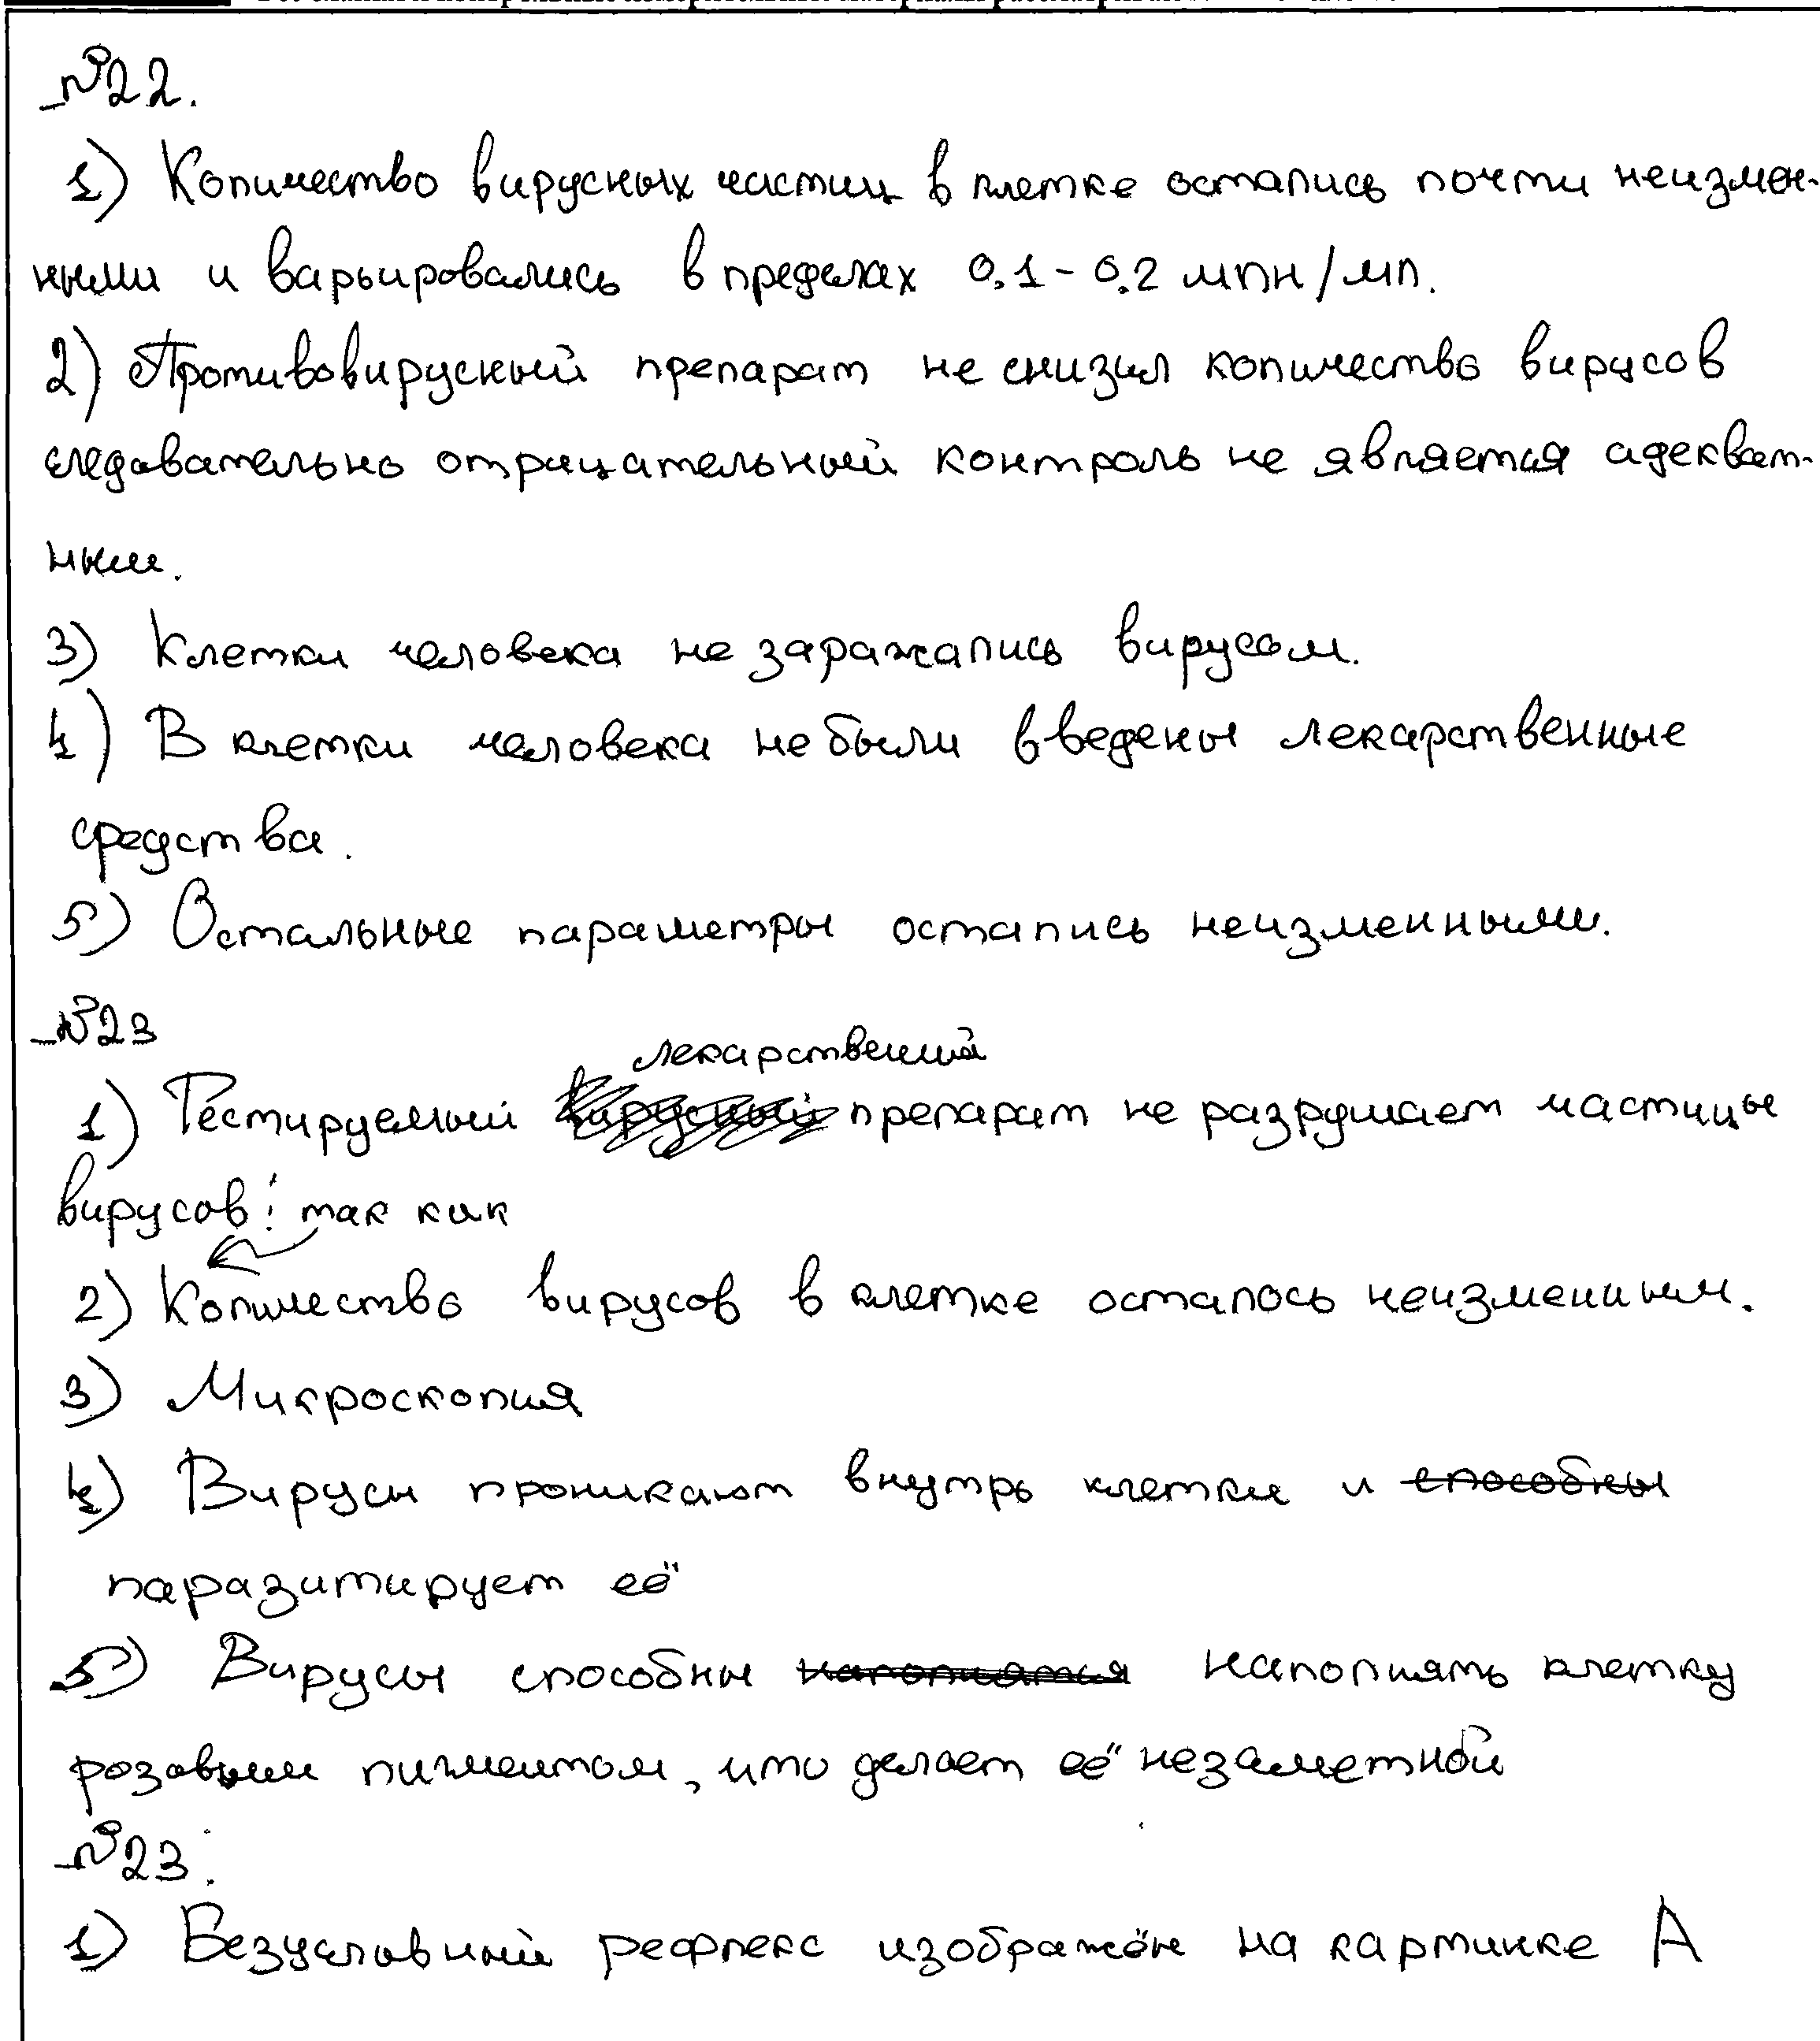 №22.
1) Количество вирусных частиц в клетке остались почти неизмен-
ными и варьировались в пределах 0,1 - 0,2 млн/мл.
2) Противовирусный препарат не снизил количество вирусов
следовательно отрицательный контроль не является адекват-
ным.
3) Клетки человека не заражались вирусом.
4) В клетки человека не были введены лекарственные
средства.
5) Остальные параметры остались неизменными.
№23
лекарственный
1) Тестируемый вирусный препарат не разрушает частицы
вирусов: так как
2) Количество вирусов в клетке осталось неизменным.
3) Микроскопия
4) Вирусы проникают внутрь клетки и способны
паразитирует её
5) Вирусы способны наполнятся наполнять клетку
розовым пигментом, что делает её незаметной
№23.
1) Безусловный рефлекс изображён на картинке А